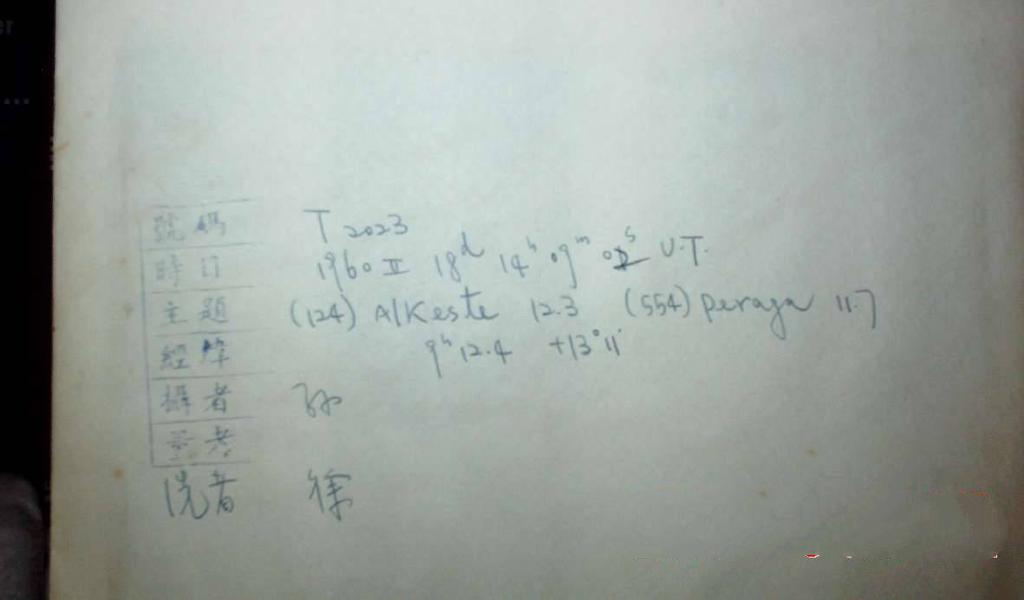 號碼 T 2023
時日 1960 II 18d 14h 09m 02s U.T.
主題 (124) Alkeste 12.3 (554) peraga 11.7
經緯 9h 12.4 +13°11'
攝者 孙
量者
洗者 徐